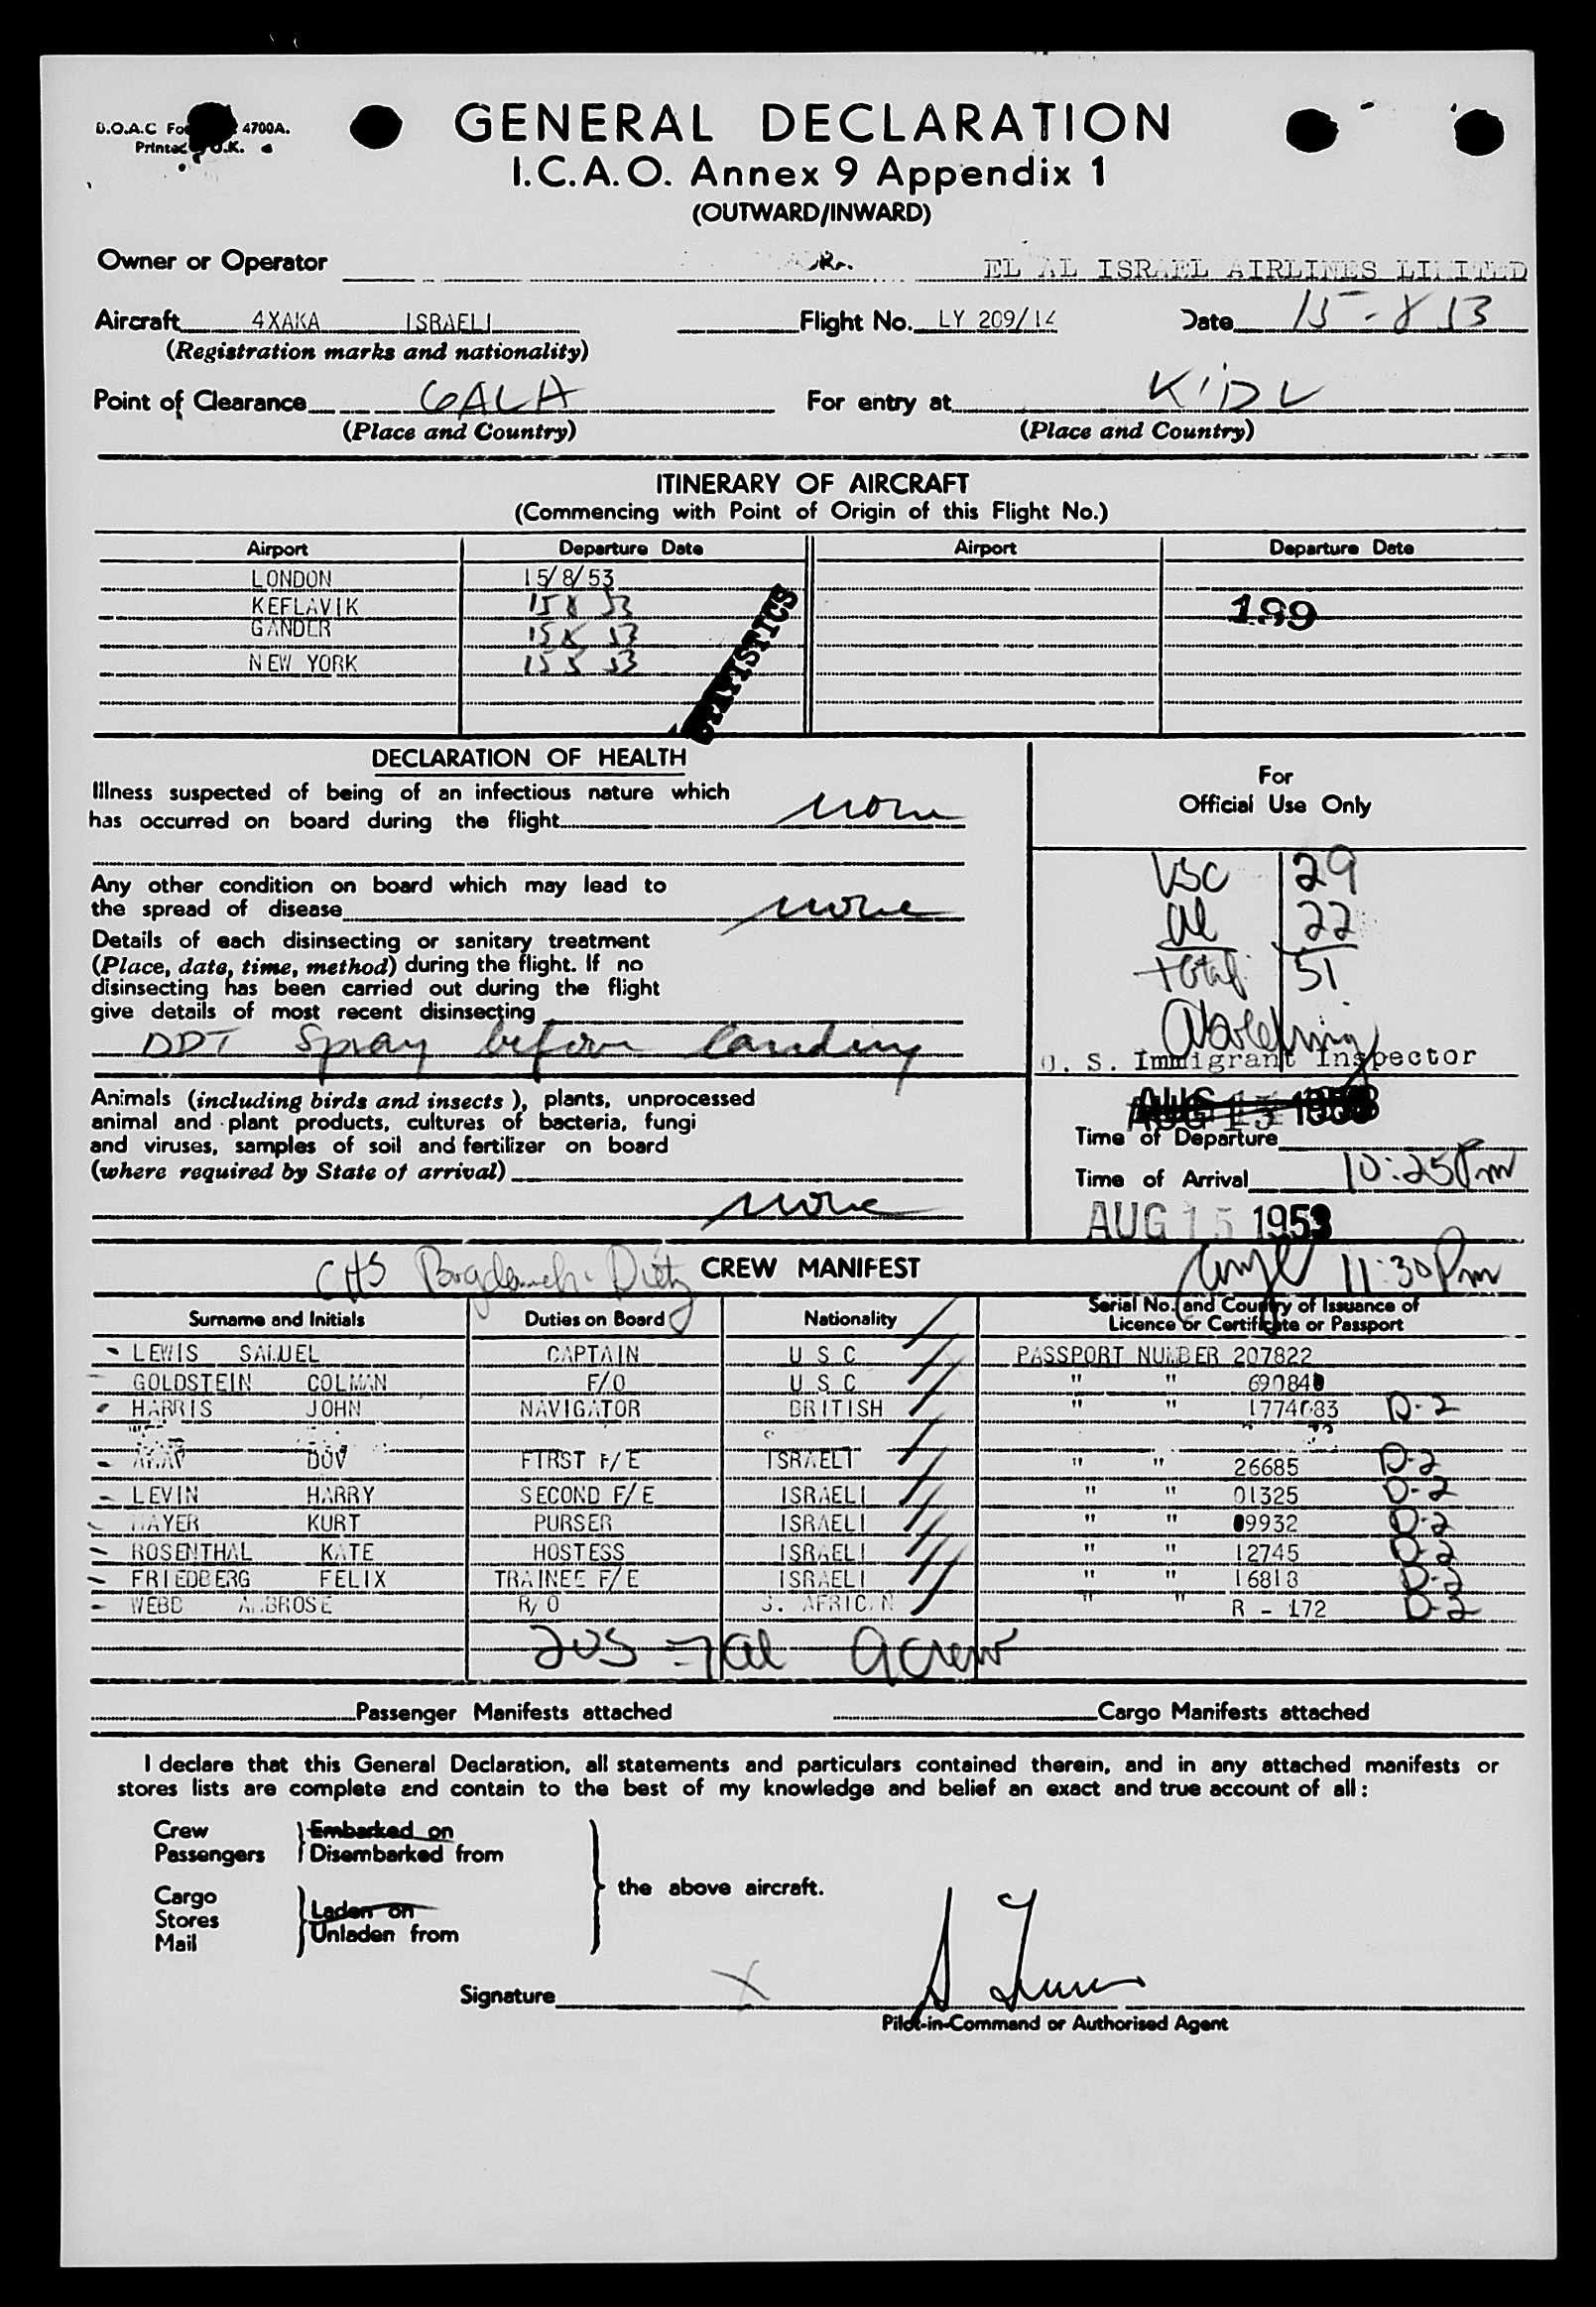 B.O.A.C 4700A.
GENERAL DECLARATION
I.C.A.O. Annex 9 Appendix 1
(OUTWARD/INWARD)
Owner or Operator EL AL ISRAEL AIRLINES LIMITED
Aircraft 4XAKA ISRAELI Flight No. LY 209/14 Date 15-8 53
(Registration marks and nationality)
Point of Clearance GALA For entry at KIDL
(Place and Country) (Place and Country)
ITINERARY OF AIRCRAFT
(Commencing with Point of Origin of this Flight No.)
Airport Departure Date Airport Departure Date
LONDON 15/8/53
KEFLAVIK 15 8 53 199
GANDER 15 8 53
NEW YORK 15 8 53
STATISTICS
DECLARATION OF HEALTH
For
Official Use Only
Illness suspected of being of an infectious nature which
has occurred on board during the flight none
Any other condition on board which may lead to
the spread of disease none
Details of each disinsecting or sanitary treatment
(Place, date, time, method) during the flight. If no
disinsecting has been carried out during the flight
give details of most recent disinsecting
DDT Spray before landing
USC 29
al 22
total 51
U. S. Immigrant Inspector
Animals (including birds and insects), plants, unprocessed
animal and plant products, cultures of bacteria, fungi
and viruses, samples of soil and fertilizer on board
(where required by State of arrival)
none
AUG 15 1953
Time of Departure
Time of Arrival 10:25 Pm
AUG 15 1953
CHS CREW MANIFEST 11:30 Pm
Surname and Initials Duties on Board Nationality Serial No. and Country of Issuance of
Licence or Certificate or Passport
LEWIS SAMUEL CAPTAIN U S C PASSPORT NUMBER 207822
GOLDSTEIN COLMAN F/O U S C " " 69084
HARRIS JOHN NAVIGATOR BRITISH " " 1774683 D-2
DOV FIRST F/E ISRAELI " " 26685 D-2
LEVIN HARRY SECOND F/E ISRAELI " " 01325 D-2
MAYER KURT PURSER ISRAELI " " 9932 D-2
ROSENTHAL KATE HOSTESS ISRAELI " " 12745 D-2
FRIEDBERG FELIX TRAINEE F/E ISRAELI " " 16818 D-2
WEBB AMBROSE R/O S. AFRICAN " " R - 172 D-2
2US 7al 9crew
Passenger Manifests attached Cargo Manifests attached
I declare that this General Declaration, all statements and particulars contained therein, and in any attached manifests or
stores lists are complete and contain to the best of my knowledge and belief an exact and true account of all:
Crew Embarked on
Passengers Disembarked from
the above aircraft.
Cargo
Stores Laden on
Mail Unladen from
Signature X
Pilot-in-Command or Authorised Agent